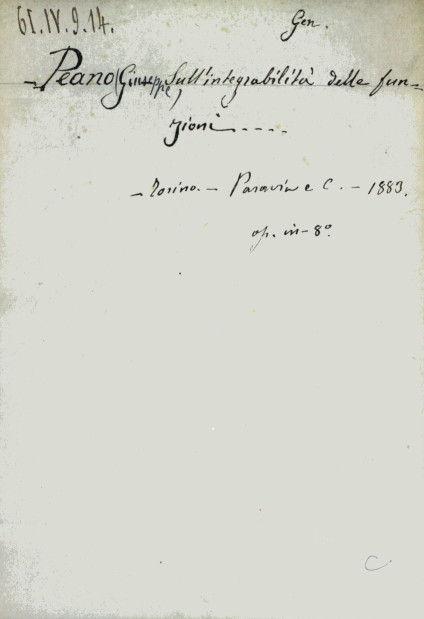 61.IV.9.14.
Gen.
- Peano (Giuseppe, Sull'integrabilità delle fun-
zioni ....
- Torino. - Paravia e C. - 1883.
op. in-8º
C